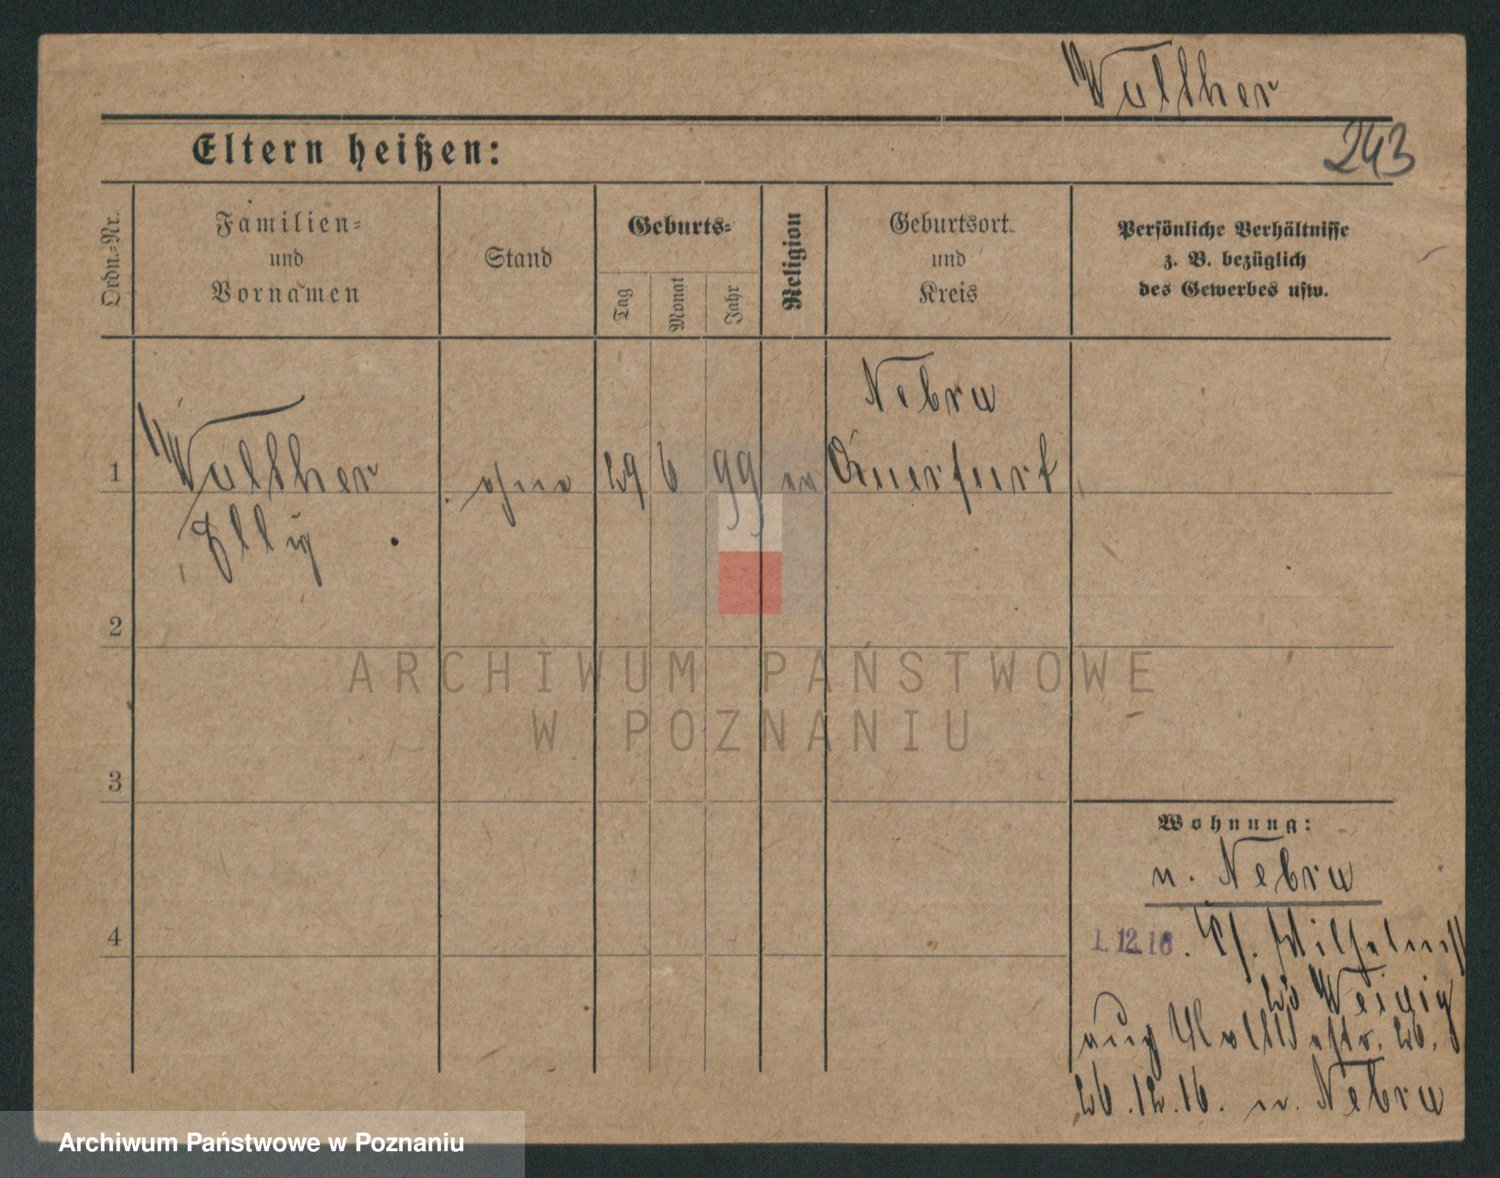 Walther
243
Eltern heißen:
Ordn.-Nr.
Familien-
und
Vornamen
Stand
Geburts-
Tag
Monat
Jahr
Religion
Geburtsort
und
Kreis
Persönliche Verhältnisse
z. B. bezüglich
des Gewerbes usw.
1
Walther
Elly
ohne
29
6
99
ev
Nebra
Querfurt
2
3
4
Wohnung:
n. Nebra
1.12.16.
26.
26.12.16. n. Nebra
ARCHIWUM PAŃSTWOWE
W POZNANIU
Archiwum Państwowe w Poznaniu